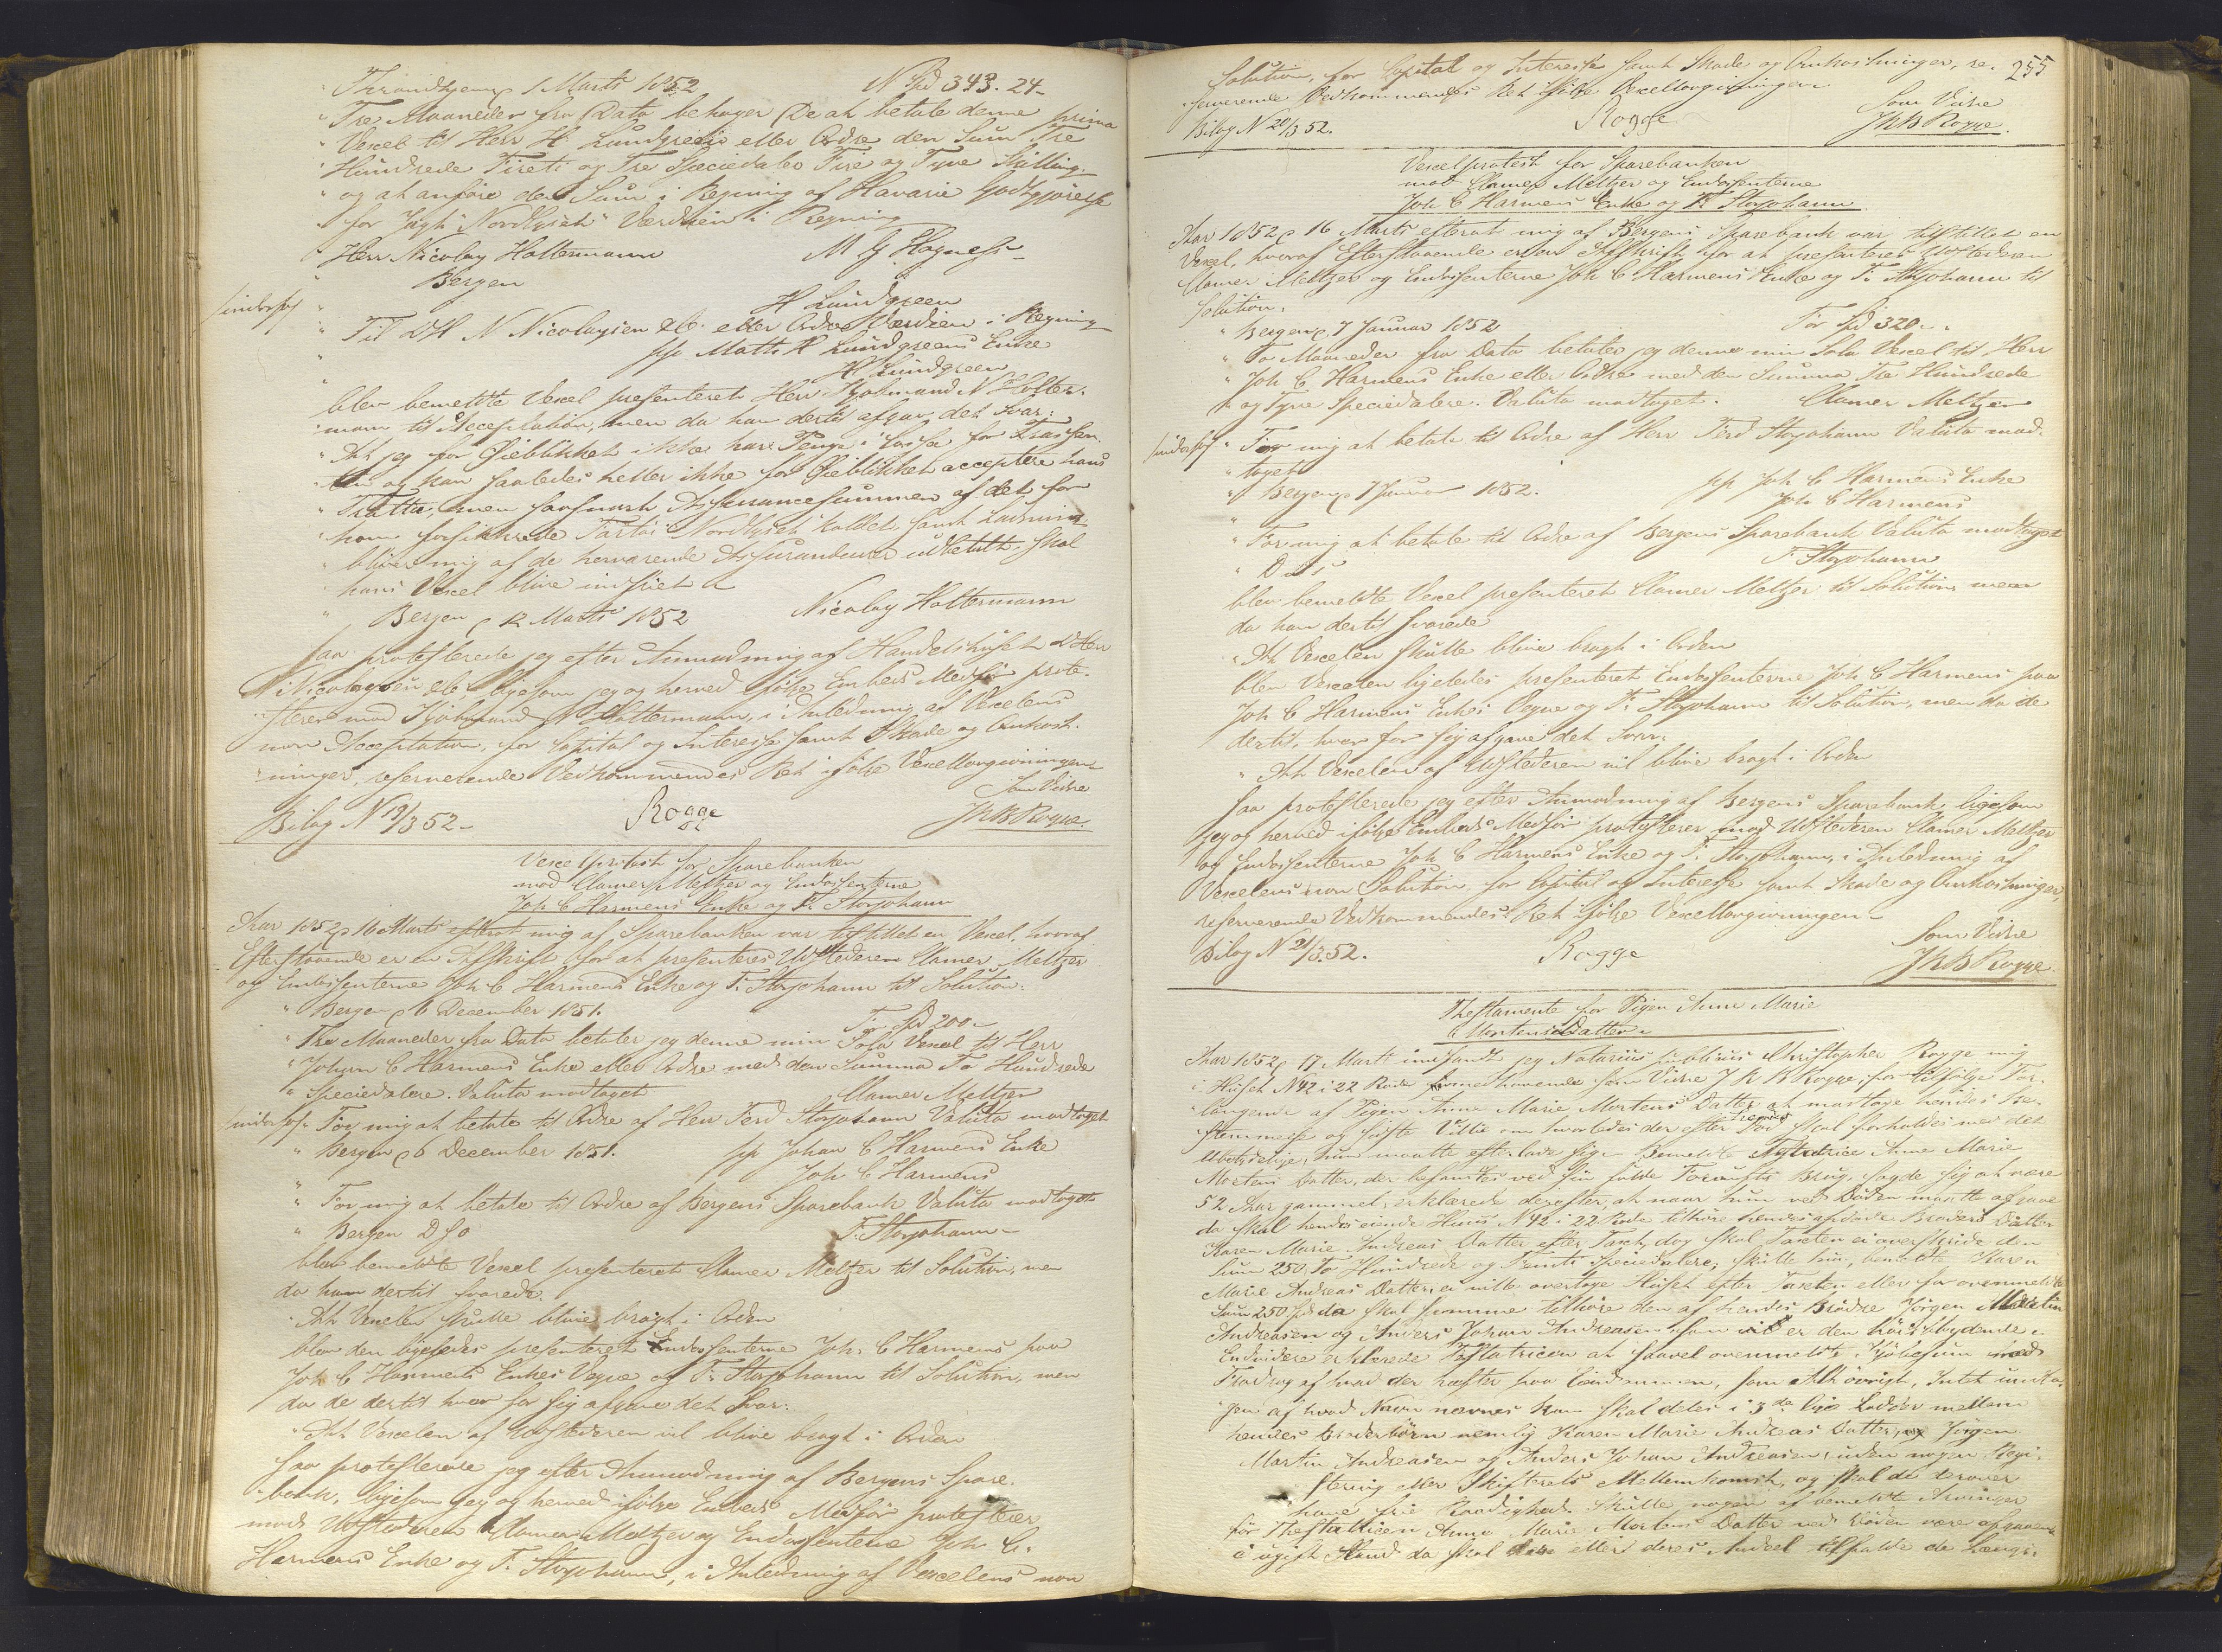 " Throndhjem p 1 Marts 1852 N Spd 343. 24_
" Tre Maaneder fra Dato behager De at betale denne prima
" Vexel til Herr H Lundgreen eller Ordre den Sum Tre
" Hundrede Fireti og Tre Speciedaler Fire og Tyve Skilling
" og at anföre den Sum i Regning af Havarie Godtgjörelse
for Jagt "Nordlyset" Værdien i Regning
" Herr Nicolay Holtermann M G Hogness_
" Bergen
indorsos " H Lundgreen
" Til DH N Nicolaysen &Co. eller Ordre Værdien i Regning
" pp Matts H Lundgreens Enke
" H Lundgreen
blev bemeldte Vexel presenteret Herr Kjöbmand N Holter-
mann til Acceptation, men da han dertil afgav det Svar:
" At jeg for Öieblikket ikke har Penge i Cassa for Trassen-
" ten og kan saaledes heller ikke for Öieblikket acceptere hans
" Tratte, men saasnart Assurancesummen af det for
" ham forsikkrede Fartöi "Nordlyset" kaldet samt Ladning
" bliver mig af de herværende Assurandeurer udbetalt, skal
hans Vexel blive indfriet
" Bergen p 12 Marts 1852 Nicolay Holtermann
saa protesterede jeg efter Anmodning af Handelshuset DHerr
N Nicolaysen &Co, ligesom jeg og herved ifölge Embeds Medför prote-
sterer mod Kjöbmand N Holtermann, i Anledning af Vexelens
non Acceptation, for Capital og Interesse samt Skade og Omkost-
ninger, reserverende Vedkommendes Ret ifölge Vexellovgivningen
Som Vidne
Bilag N 19/3 52_ Rogge JKB Rogge.
Vexelprotest for Sparebanken
mod Clamer Meltzer og Endossenterne
Joh C Harmens Enke og F. Storjohann
Aar 1852 p 16 Marts efterat mig af Sparebanken var tilstillet en Vexel, hvoraf
Efterstaaende er en Afskrift for at presenteres Udstederen Clamer Meltzer
og Endossenterne Joh C Harmens Enke og F. Storjohann til Solution:
" Bergen p 6 December 1851. For Spd 200_
" Tre Maaneder fra Dato betaler jeg denne min Sola Vexel til Herr
" Johan C Harmens Enke eller Ordre med den Summa To Hundrede
" Speciedalere. Valuta modtaget Clamer Meltzer
indorsos " For mig at betale til Ordre af Herr Ferd Storjohann Valuta modtaget
" Bergen p 6 December 1851. pp Johan C Harmens Enke
" Joh C Harmens
" For mig at betale til Ordre af Bergens Sparebank Valuta modtaget
" Bergen D f o F. Storjohann_
blev bemeldte Vexel presenteret Clamer Meltzer til Solution, men
da han dertil svarede:
" At Vexelen skulle blive bragt i Orden
blev den ligeledes presenteret Endossenterne Joh. C Harmens paa
Joh C Harmens Enkes Vegne og F. Storjohann til Solution, men
da de dertil hver for sig afgave det Svar:
" At Vexelen af Udstederen vil blive bragt i Orden
saa protesterede jeg efter Anmodning af Bergens Spare-
bank, ligesom jeg og herved ifölge Embeds Medför protesterer
mod Udstederen Clamer Meltzer og Endossenterne Joh C.
Harmens Enke og F. Storjohann, i Anledning af Vexelens non
255
Solution, for Capital og Interesse samt Skade og Omkostninger, re-
serverende Vedkommendes Ret ifölge Vexellovgivningen
Som Vidne
Bilag N 20/3 52. Rogge JKB Rogge.
Vexelprotest for Sparebanken
mod Clamer Meltzer og Endossenterne
Joh C Harmens Enke og F. Storjohann
Aar 1852 p 16 Marts efterat mig af Bergens Sparebank var tilstillet en
Vexel, hvoraf Efterstaaende er en Afskrift for at presenteres Udstederen
Clamer Meltzer og Endossenterne Joh C Harmens Enke og F. Storjohann til
Solution:
" Bergen p 7 Januar 1852 For Spd 320_
" To Maaneder fra Dato betaler jeg denne min Sola Vexel til Herr
" Joh C. Harmens Enke eller Ordre med den Summa Tre Hundrede
" og Tyve Speciedalere. Valuta modtaget. Clamer Meltzer
indorsos " For mig at betale til Ordre af Herr Ferd Storjohann Valuta mod-
" taget
" Bergen p 7 Januar 1852. pp Joh C Harmens Enke
" Joh C Harmens
" For mig at betale til Ordre af Bergens Sparebank Valuta modtaget
" D u s F. Storjohann
blev bemeldte Vexel presenteret Clamer Meltzer til Solution, men
da han dertil svarede
" At Vexelen skulle blive bragt i Orden
blev Vexelen ligeledes presenteret Endossenterne Joh C Harmens paa
Joh C Harmens Enkes Vegne og F. Storjohann til Solution, men da de
dertil, hver for sig afgave det Svar:
" At Vexelen af Udstederen vil blive bragt i Orden
saa protesterede jeg efter Anmodning af Bergens Sparebank, ligesom
jeg og herved ifölge Embeds Medför protesterer mod Udstederen Clamer Meltzer
og Endossenterne Joh C Harmens Enke og F. Storjohann, i Anledning af
Vexelens non Solution for Capital og Interesse samt Skade og Omkostninger,
reserverende Vedkommendes Ret ifölge Vexellovgivningen_
Som Vidne
Bilag N 21/3.52. Rogge JKB Rogge.
Thestamente for Pigen Anne Marie
Mortens Datter.
Aar 1852 p 17 Marts indfandt jeg Notarius publicus Christopher Rogge mig
i Huset N 42 i 22 Rode medhavende som Vidne J K B Rogge, for tilfölge For-
langende af Pigen Anne Marie Mortens Datter at modtage hendes Be-
stemmelse og sidste Villie om hvorledes der efter hendes Död skal forholdes med det
Ubetydelige, hun maatte efterlade sig. Bemeldte Testatrice Anne Marie
Mortens Datter, der befandtes ved sin fulde Fornufts Brug, sagde sig at være
52 Aar gammel, erklærede derefter, at naar hun ved Döden maatte afgaae
da skal hendes eiende Huus N 42 i 22 Rode tilhöre hendes afdöde Broders Datter
Karen Marie Andreas Datter efter Taxt, dog skal Taxten ei overskride den
Sum 250, To Hundrede og Femti Speciedalere; skulle hun, bemeldte Karen
Marie Andreas Datter, ei ville overtage Huset efter Taxten eller for ovenmeldte
Sum 250 Spd da skal samme tilhöre den af hendes Brödre Jörgen Martin
Andreasen og Anders Johan Andreasen, som er den höistbydende.
Endvidere erklærede Testatricen at saavel ovenmeldte Kjöbesum med
Fradrag af hvad der hæfter paa Eiendommen, som Alt övrigt, Intet undta-
gen af hvad Navn nævnes kan skal deles i 3de lige Lodder mellem
hendes Broderbörn nemlig Karen Marie Andreas Datter, Jörgen
Martin Andreasen og Anders Johan Andreasen, uden nogen Regi-
strering eller Skifterets Mellemkomst, og skal de derover
have frie Raadighed. Skulle nogen af bemeldte Arvinger
för Thestatricen Anne Marie Mortens Datter ved Döden være afgaaende
i ugift Stand da skal eller deres Andeel tilfalde de Længst-